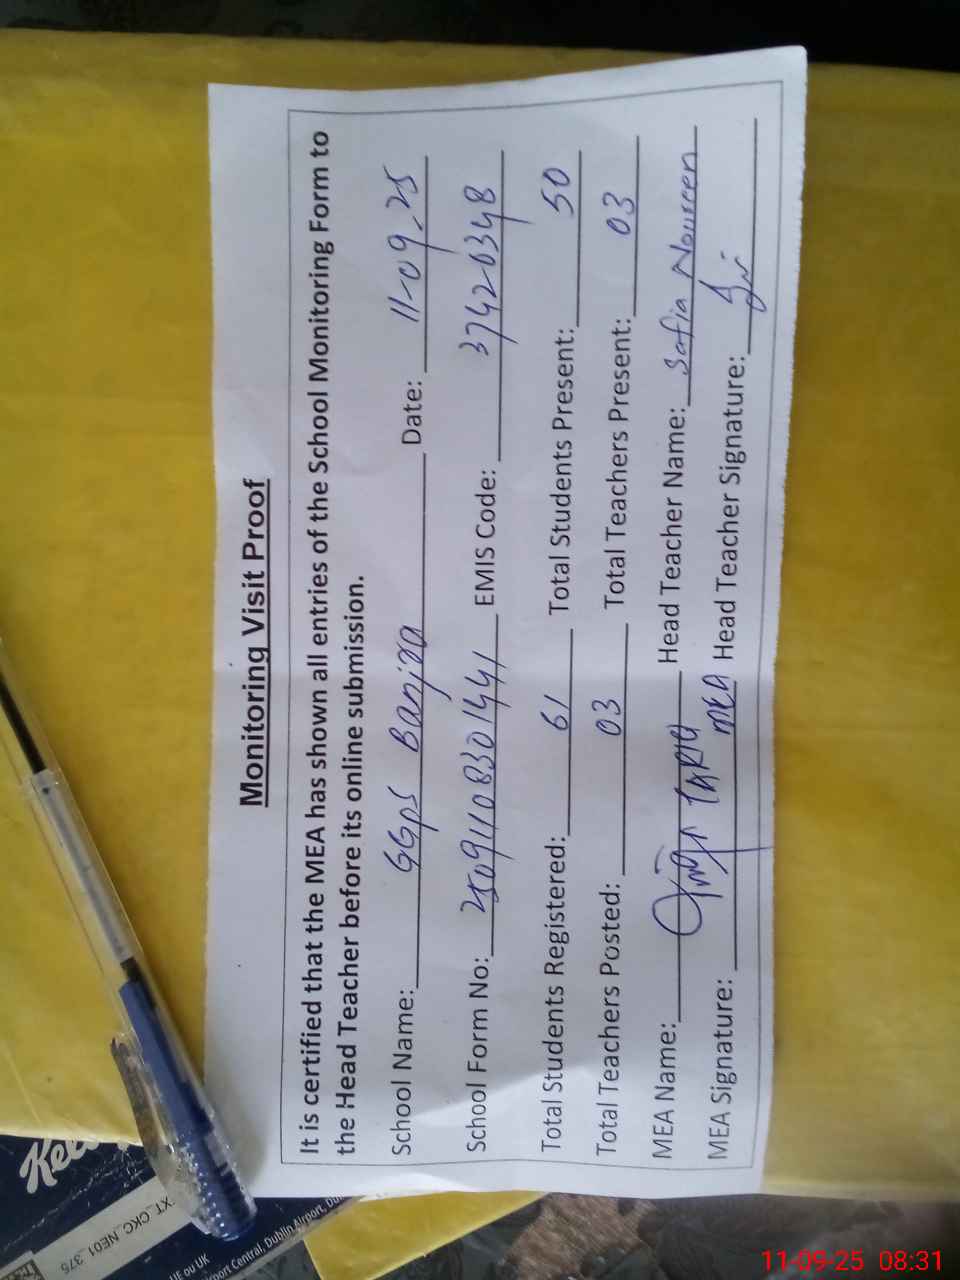 Monitoring Visit Proof
It is certified that the MEA has shown all entries of the School Monitoring Form to
the Head Teacher before its online submission.
School Name: GGPS Banjra Date: 11-09-25
School Form No: 25091108301441 EMIS Code: 37420348
Total Students Registered: 61 Total Students Present: 50
Total Teachers Posted: 03 Total Teachers Present: 03
MEA Name: Head Teacher Name: Safia Noureen
MEA Signature: MEA Head Teacher Signature:
XT_CKC_NE01_375
UE ou UK
port Central, Dublin Airport,
11-09-25 08:31